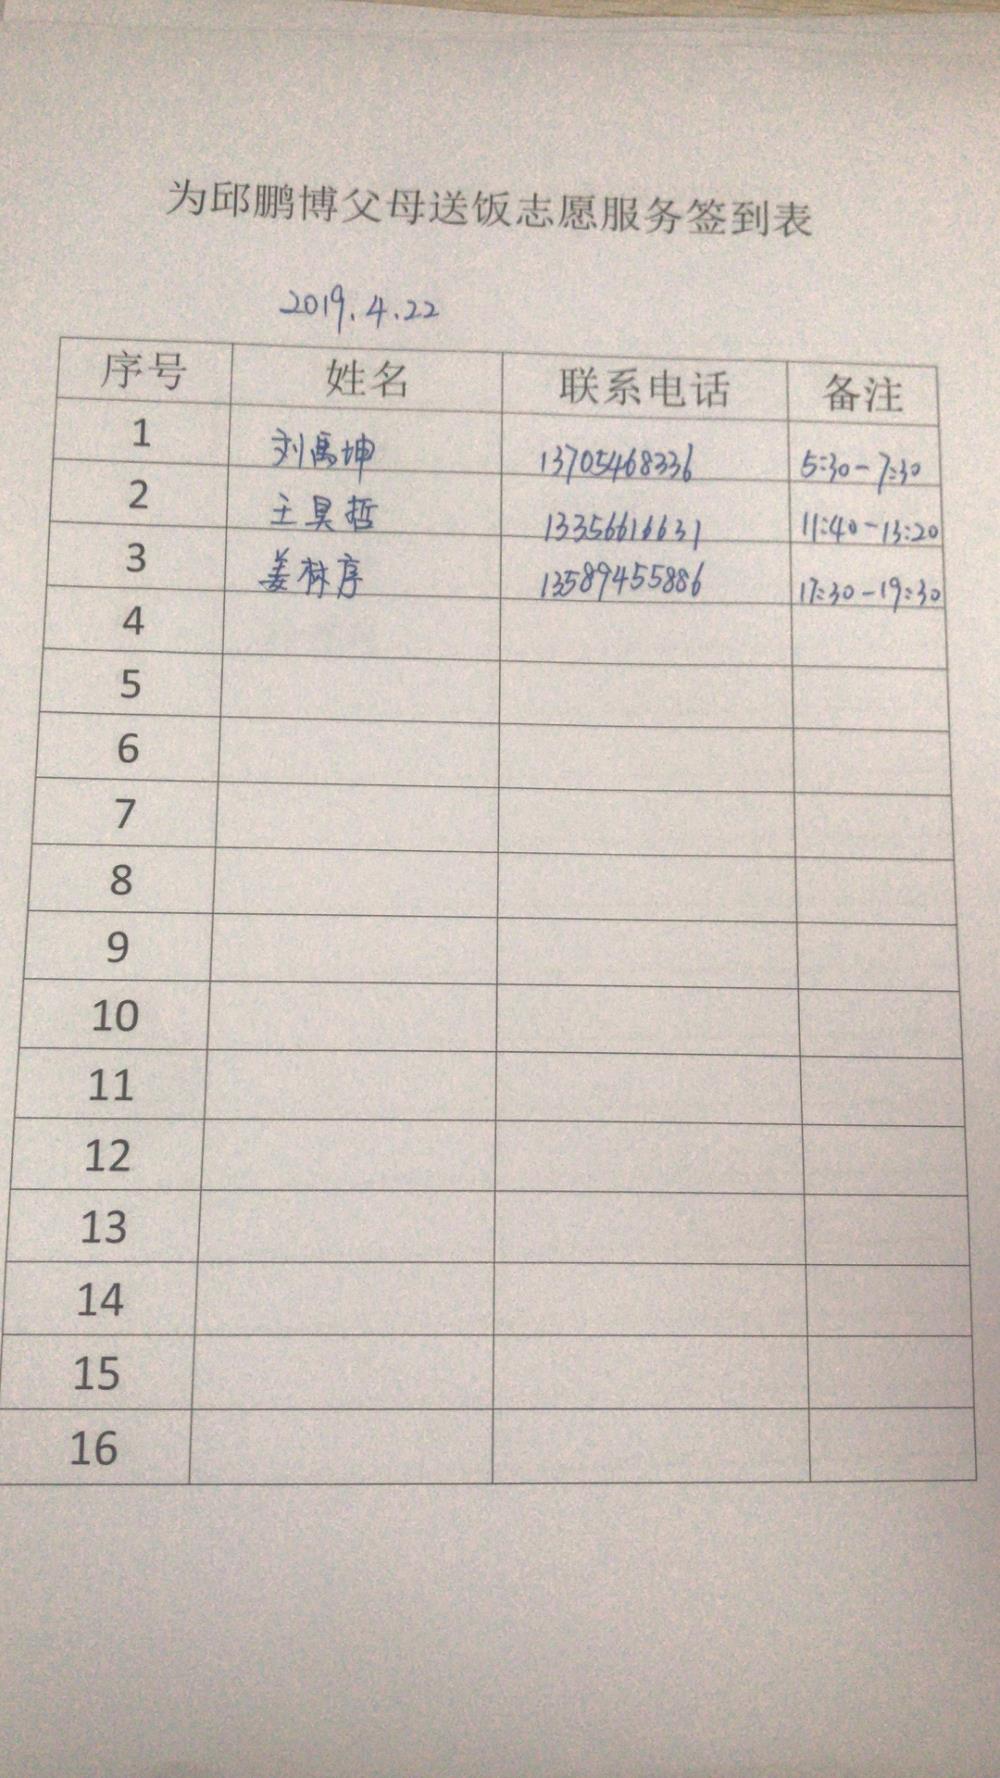 为邱鹏博父母送饭志愿服务签到表
2019.4.22
序号 姓名 联系电话 备注
1 刘禹坤 13705468336 5:30-7:30
2 王昊哲 13356616631 11:40-13:20
3 姜林序 13589455886 17:30-19:30
4
5
6
7
8
9
10
11
12
13
14
15
16